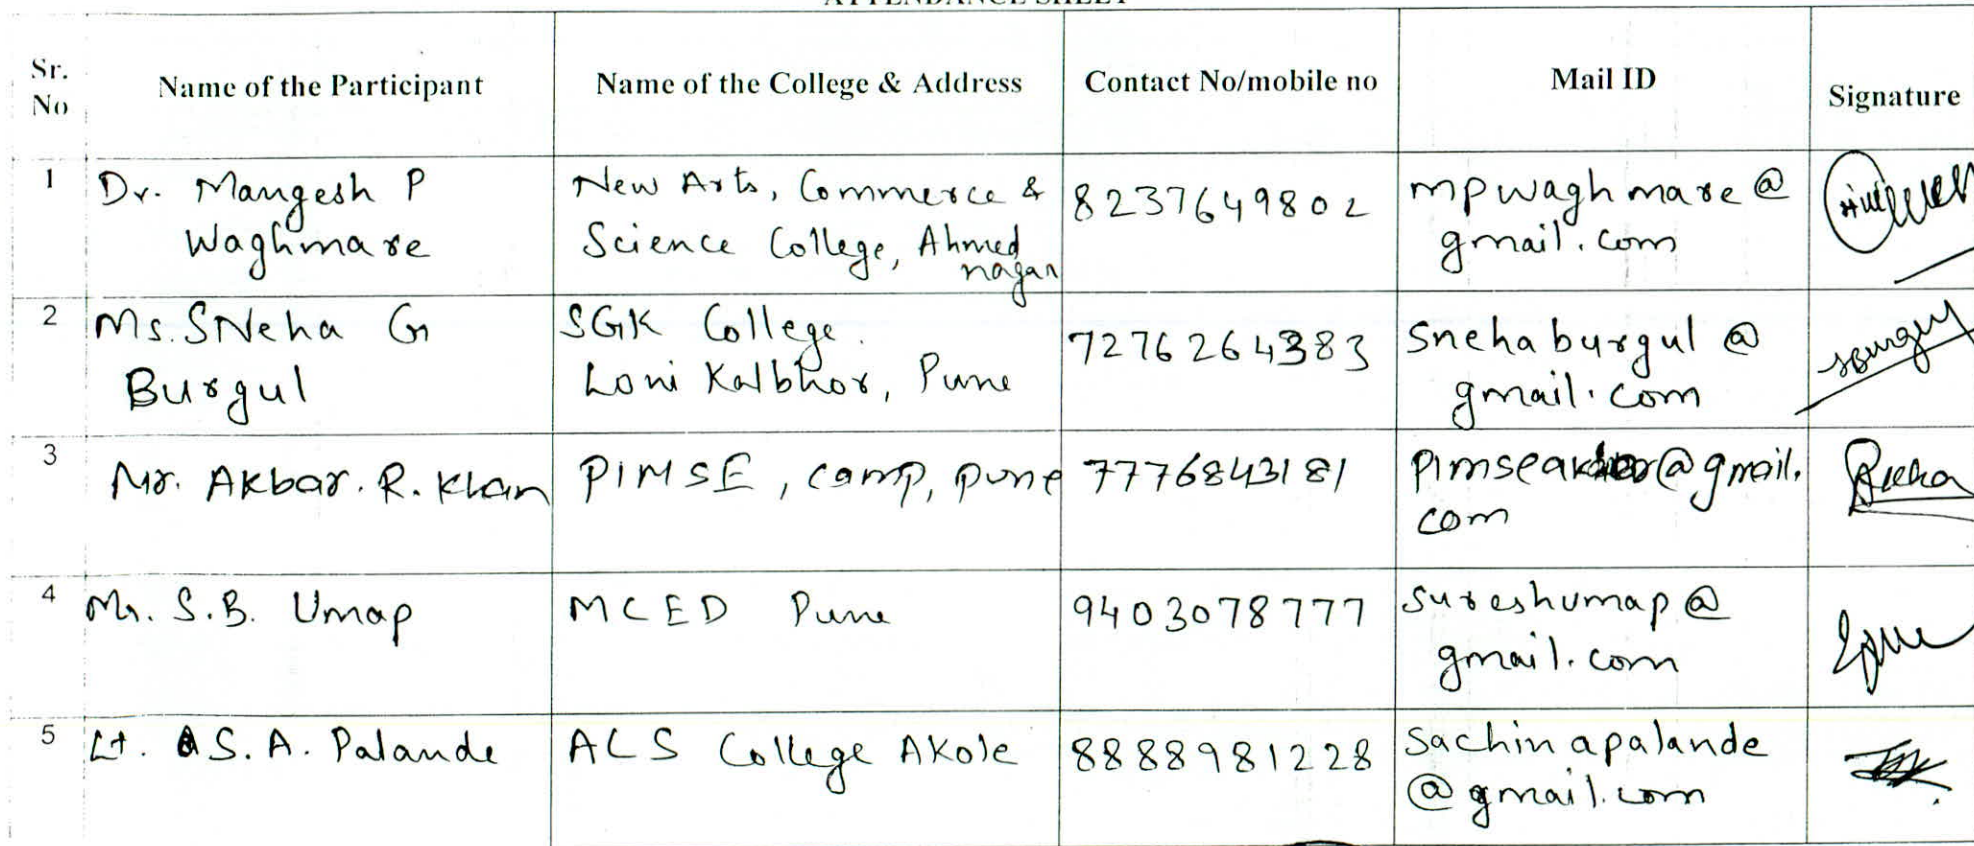 ATTENDANCE SHEET
Sr. No
Name of the Participant
Name of the College & Address
Contact No/mobile no
Mail ID
Signature
1
Dr. Mangesh P
Waghmare
New Arts, Commerce &
Science College, Ahmed
nagar
8237649802
mpwaghmare@
gmail.com
2
Ms. SNeha G
Burgul
SGK College.
Loni Kalbhor, Pune
7276264383
Snehaburgul@
gmail.com
3
Mr. Akbar. R. Khan
PIMSE, camp, pune
7776843181
@gmail.
com
4
Mr. S.B. Umap
MCED Pune
9403078777
sureshumap@
gmail.com
5
Lt. S. A. Palande
ALS College Akole
8888981228
Sachinapalande
@gmail.com